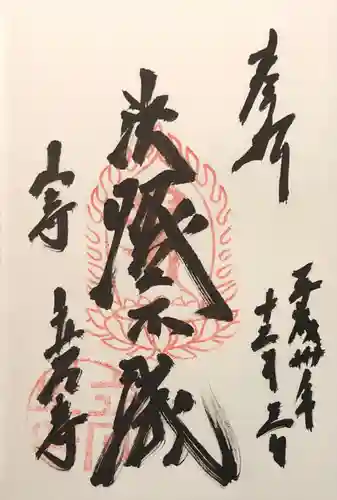 奉拝
法燈不滅
山寺
立石寺
平成卅年
十二月三日